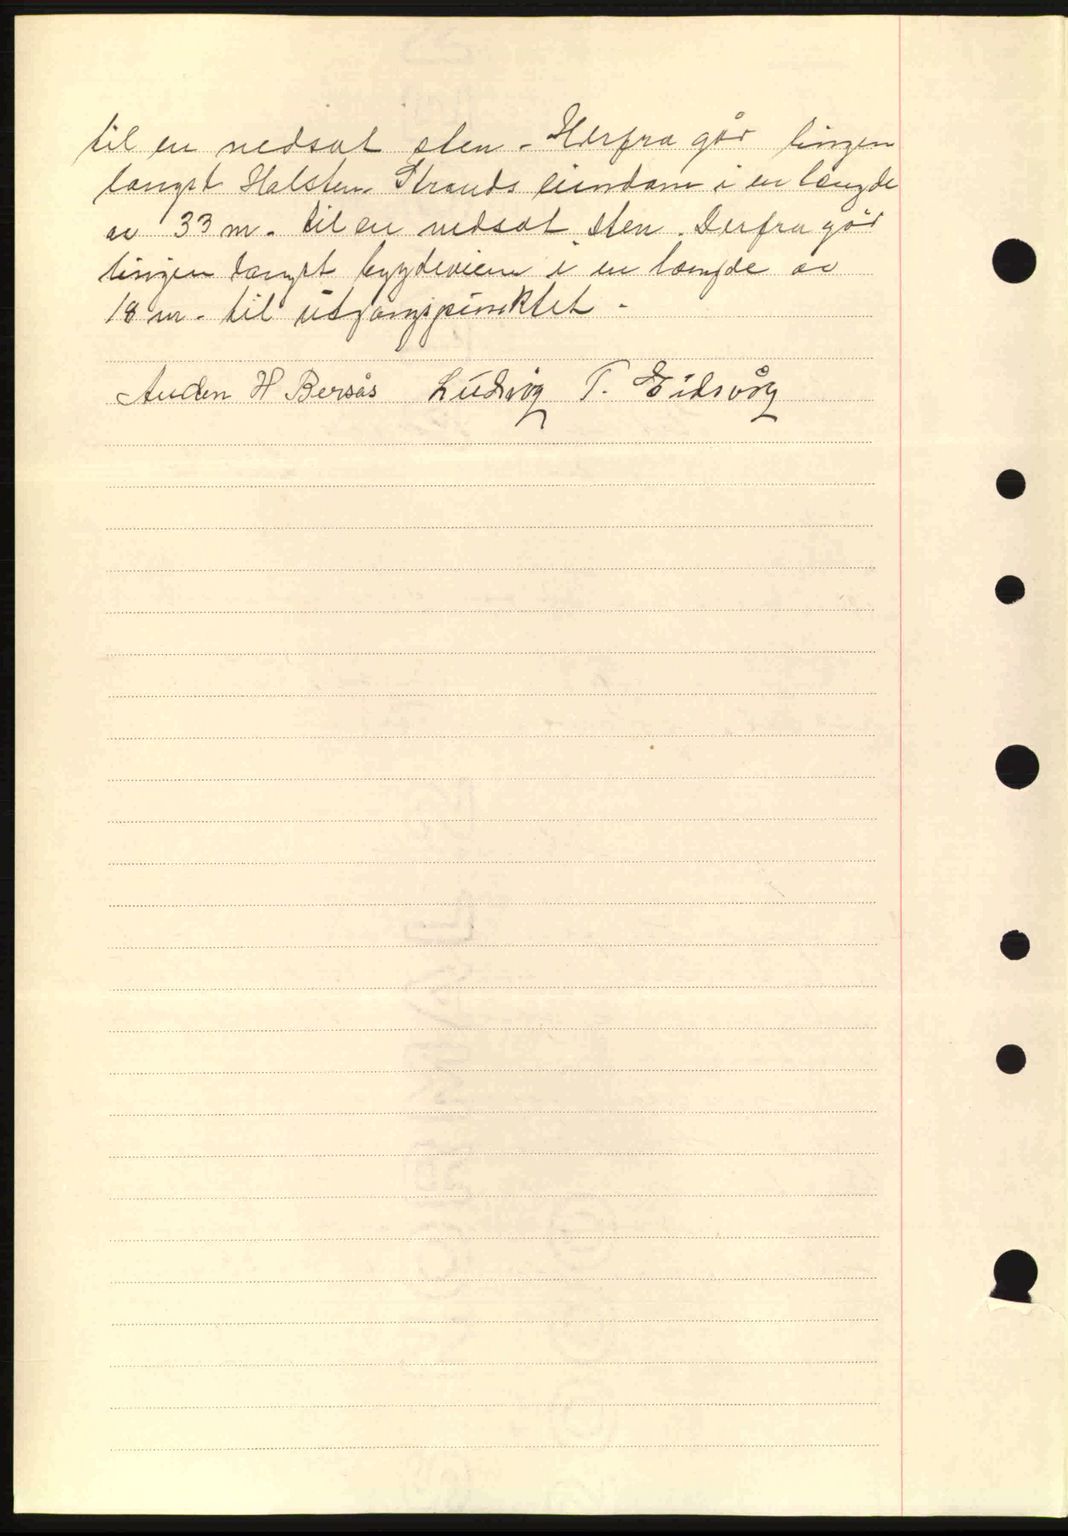 til en nedsat sten. Herfra går lingen
langst Halsten Strands eiendom i en længde
av 33 m. til en nedsat sten. Derfra går
lingen langst bygdeveien i en længde av
18 m. til utgangspunktet.
Auden H Bersås Ludvig T. Eidsvåg